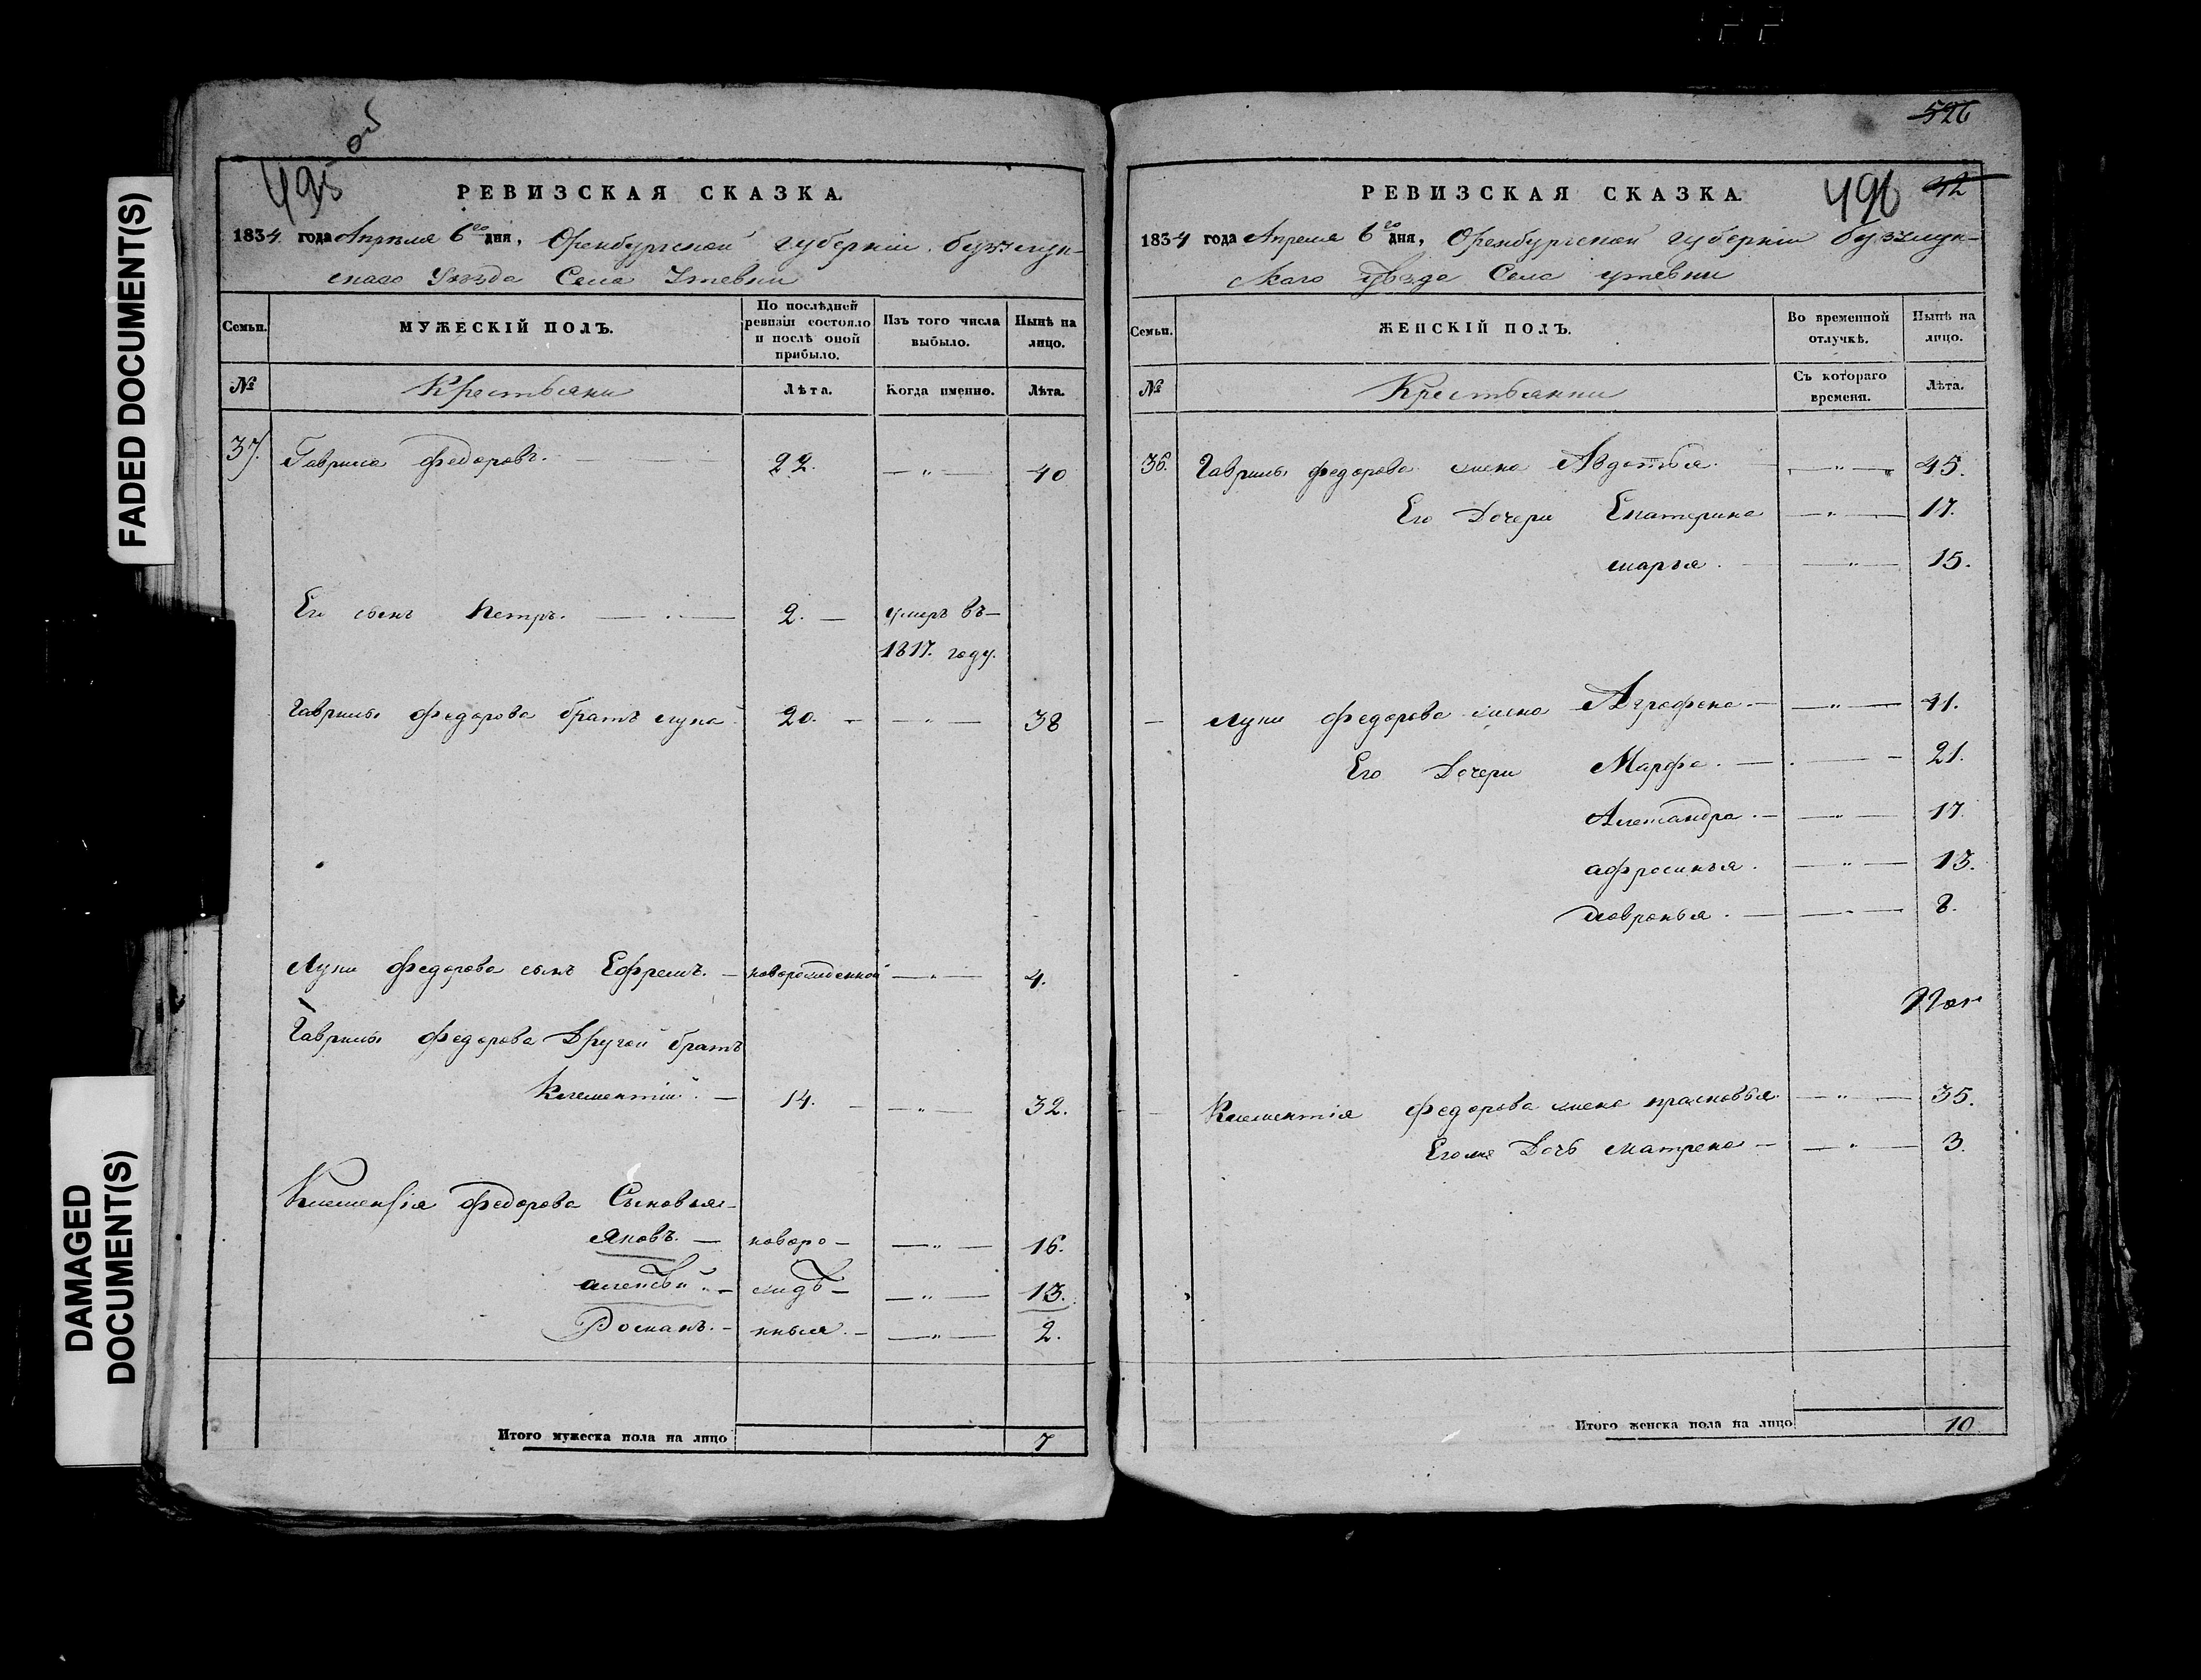 FADED DOCUMENT(S)
DAMAGED
DOCUMENT(S)
495
об
РЕВИЗСКАЯ СКАЗКА.
1834. года Апреля 6го дня, Оренбургской губерніи бузулук-
скаго Уезда Села Утевки
Семьи.
МУЖЕСКІЙ ПОЛЪ.
По послѣдней ревизіи состояло и послѣ оной прибыло.
Изъ того числа выбыло.
Нынѣ на лицо.
№
Крестьяни
Лѣта.
Когда именно.
Лѣта.
37. Гаврила федоровъ. 22. — „ — 40
Его сынъ Петръ. 2. — умеръ въ—
1817. году.
Гаврилы федорова братъ лука 20. — „ — 38
Луки федорова сынъ Ефремъ. — новорожденной — „ — 4.
Гаврилы федорова Другой братъ
Клементій. — 14. — „ — 32.
Клементія федорова Сыновья—
Яковъ. — новоро — — „ — 16.
алексѣй. — жидѣ — — „ — 13.
Романъ. — нныя. — — „ — 2.
Итого мужеска пола на лицо 7
526
496
42
РЕВИЗСКАЯ СКАЗКА.
1834 года Апреля 6го дня, Оренбургской губерніи бузулук-
скаго уѣзда Села утевки
Семьи.
ЖЕНСКІЙ ПОЛЪ.
Во временной отлучкѣ.
Нынѣ на лицо.
№
Крестьянки
Съ котораго времени.
Лѣта.
36. Гаврилы федорова жена Авдотья. — „ — 45.
Его Дочери Екатерина — „ — 17.
марья. — „ — 15.
— Луки федорова жена Аграфена — — „ — 41.
Его Дочери Марфа. — 21.
Александра. — — „ — 17.
афросинья. — „ — 13.
мавронья. — — „ — 8.
Клементія федорова жена прасковья — „ — 35.
Его же Дочь матрена — — „ — 3.
Итого женска пола на лицо 10